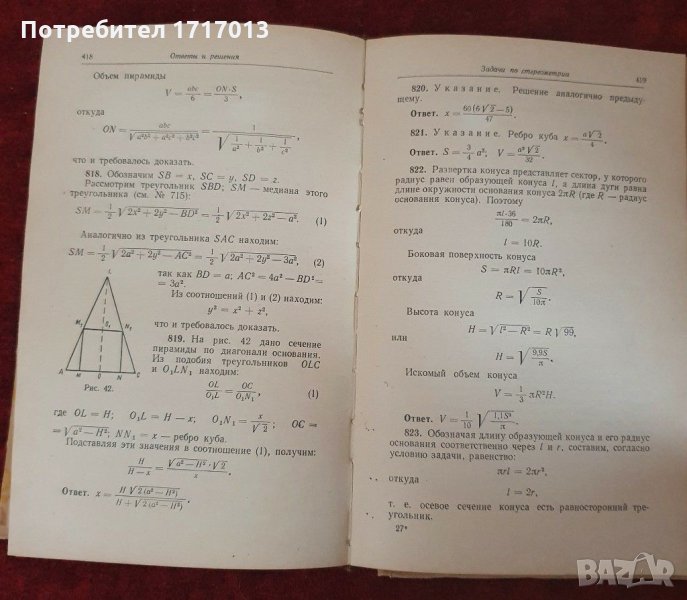 Потребител 1717013
418 Ответы и решения
Объем пирамиды
V = abc/6 = ON·S/3,
откуда
ON = abc/√(a²b² + a²c² + b²c²) = 1/√(1/a² + 1/b² + 1/c²),
что и требовалось доказать.
818. Обозначим SB = x, SC = y, SD = z.
Рассмотрим треугольник SBD; SM — медиана этого
треугольника (см. № 715):
SM = 1/2 √(2x² + 2y² − BD²) = 1/2 √(2x² + 2z² − a²). (1)
Аналогично из треугольника SAC находим:
SM = 1/2 √(2a² + 2y² − AC²) = 1/2 √(2a² + 2y² − 3a²), (2)
так как BD = a; AC² = 4a² − BD² =
= 3a².
Из соотношений (1) и (2) находим:
y² = x² + z²,
что и требовалось доказать.
819. На рис. 42 дано сечение
пирамиды по диагонали основания.
Из подобия треугольников OLC
и O₁LN₁ находим:
OL/O₁L = OC/O₁N₁, (1)
L
M₁ O₁ N₁
A M O N C
Рис. 42.
где OL = H; O₁L = H − x; O₁N₁ = x/√2; OC =
= √(a² − H²); NN₁ = x — ребро куба.
Подставляя эти значения в соотношение (1), получим:
H/(H − x) = √(a² − H²)·√2/x.
Ответ. x = H√2(a² − H²)/(H + √2(a² − H²)).
Задачи по стереометрии 419
820. Указание. Решение аналогично предыду-
щему.
Ответ. x = 60(6√2 − 5)/47.
821. Указание. Ребро куба x = a√2/4.
Ответ. S = 3/4 a²; V = a³√2/32.
822. Развертка конуса представляет сектор, у которого
радиус равен образующей конуса l, а длина дуги равна
длине окружности основания конуса 2πR (где R — радиус
основания конуса). Поэтому
πl·36/180 = 2πR,
откуда
l = 10R.
Боковая поверхность конуса
S = πRl = 10πR²,
откуда
R = √(S/10π).
Высота конуса
H = √(l² − R²) = R√99,
или
H = √(9,9S/π).
Искомый объем конуса
V = 1/3 πR²H.
Ответ. V = 1/10 √(1,1S³/π).
823. Обозначая длину образующей конуса и его радиус
основания соответственно через l и r, составим, согласно
условию задачи, равенство:
πrl = 2πr²,
откуда
l = 2r,
т. е. осевое сечение конуса есть равносторонний тре-
угольник.
27*
BAZAR